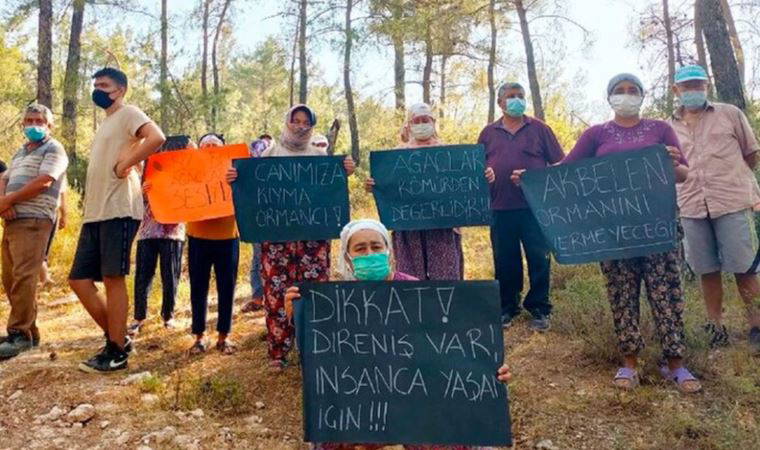 SESİ
CANIMIZA
KIYMA
ORMANCI!
AĞAÇLAR
KÖMÜRDEN
DEĞERLİDİR!!
AKBELEN
ORMANINI
VERMEYECEĞİZ
DİKKAT!
DİRENİŞ VAR,
İNSANCA YAŞAM
İÇİN!!!